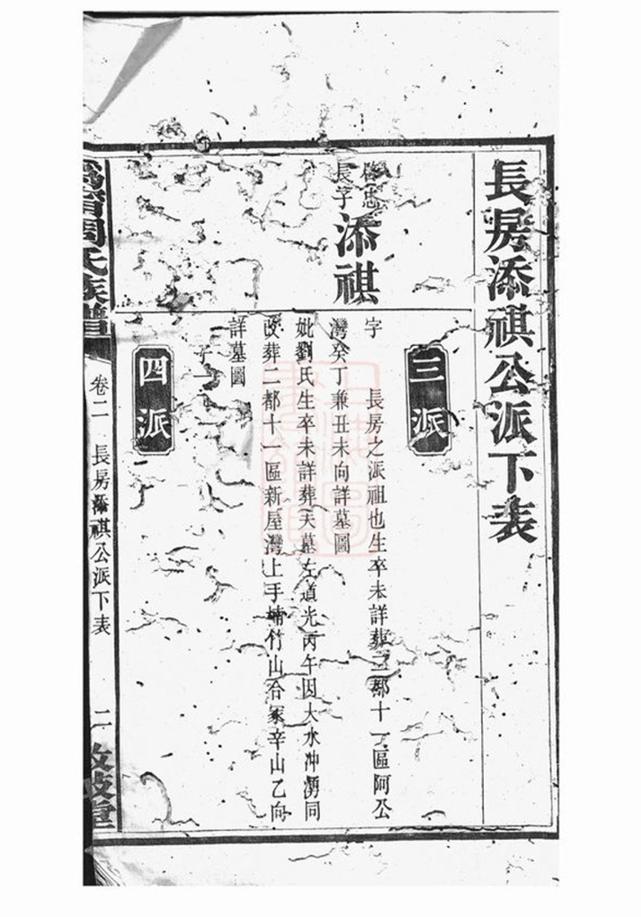 長房添祺公派下表
三派
啓忠長子添祺
字　長房之派祖也生卒未詳葬二都十一區阿公
灣癸丁兼丑未向詳墓圖
妣劉氏生卒未詳葬夫墓左道光丙午因大水冲湧同
改葬二都十一區新屋灣上手楠竹山合冢辛山乙向
詳墓圖
子一
四派
周氏族譜
卷二
長房添祺公派下表
二